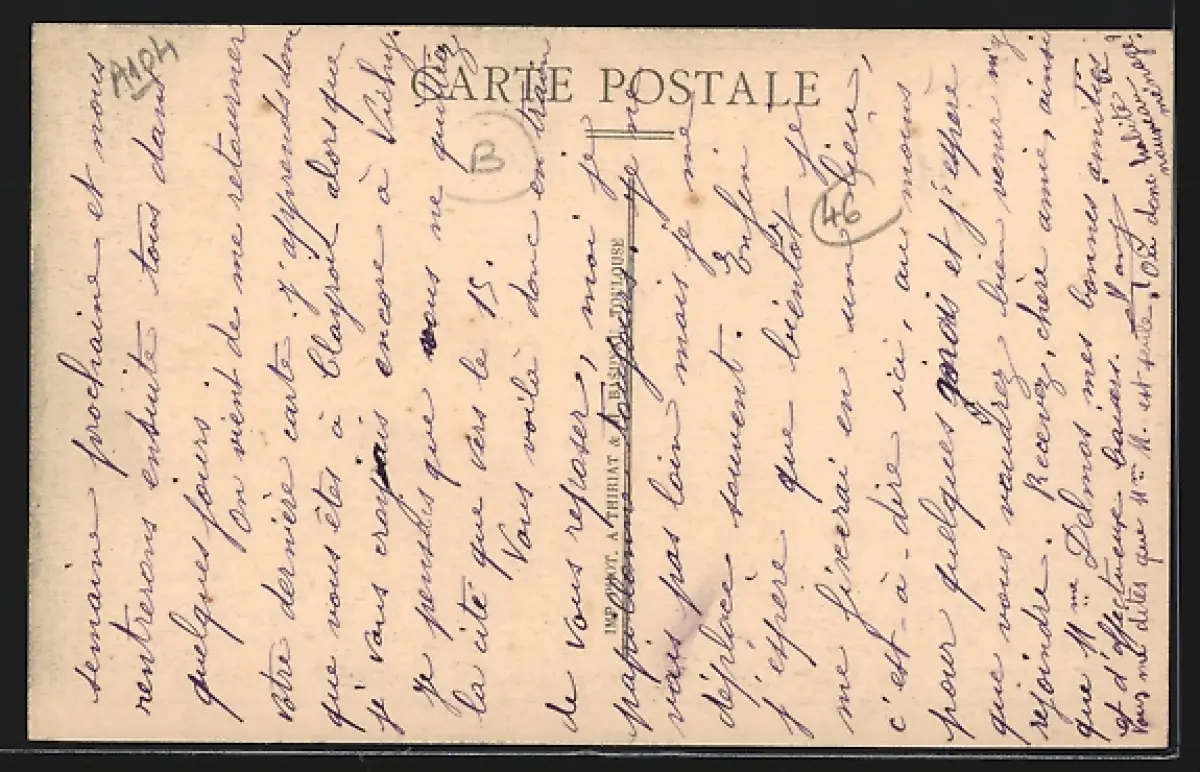 CARTE POSTALE
A104
B
46
IMP. PHOT. A. THIRIAT & BASUYAU, TOULOUSE
semaine prochaine et nous
rentrerons ensuite tous dans
quelques jours
On vient de me retourner
votre dernière carte. J'apprends donc
que vous êtes à Clayrol alors que
je vous croyais encore à Vichy.
Je pensais que vous ne quittiez
la cité que vers le 15.
Vous voilà donc en train
de vous reposer, moi je
papillonne toujours. Je ne
vais pas loin mais je me
déplace souvent. Enfin
j'espère que bientôt je
me fixerai en un lieu,
c'est-à-dire ici, au moins
pour quelques mois et j'espère
que vous voudrez bien venir m'y
rejoindre. Recevez, chère amie, ainsi
que Mme Delmas mes bonnes amitiés
et d'affectueux baisers.
Vous me dites que Mme M. est seule! Où donc habite
nouveau
ménage?